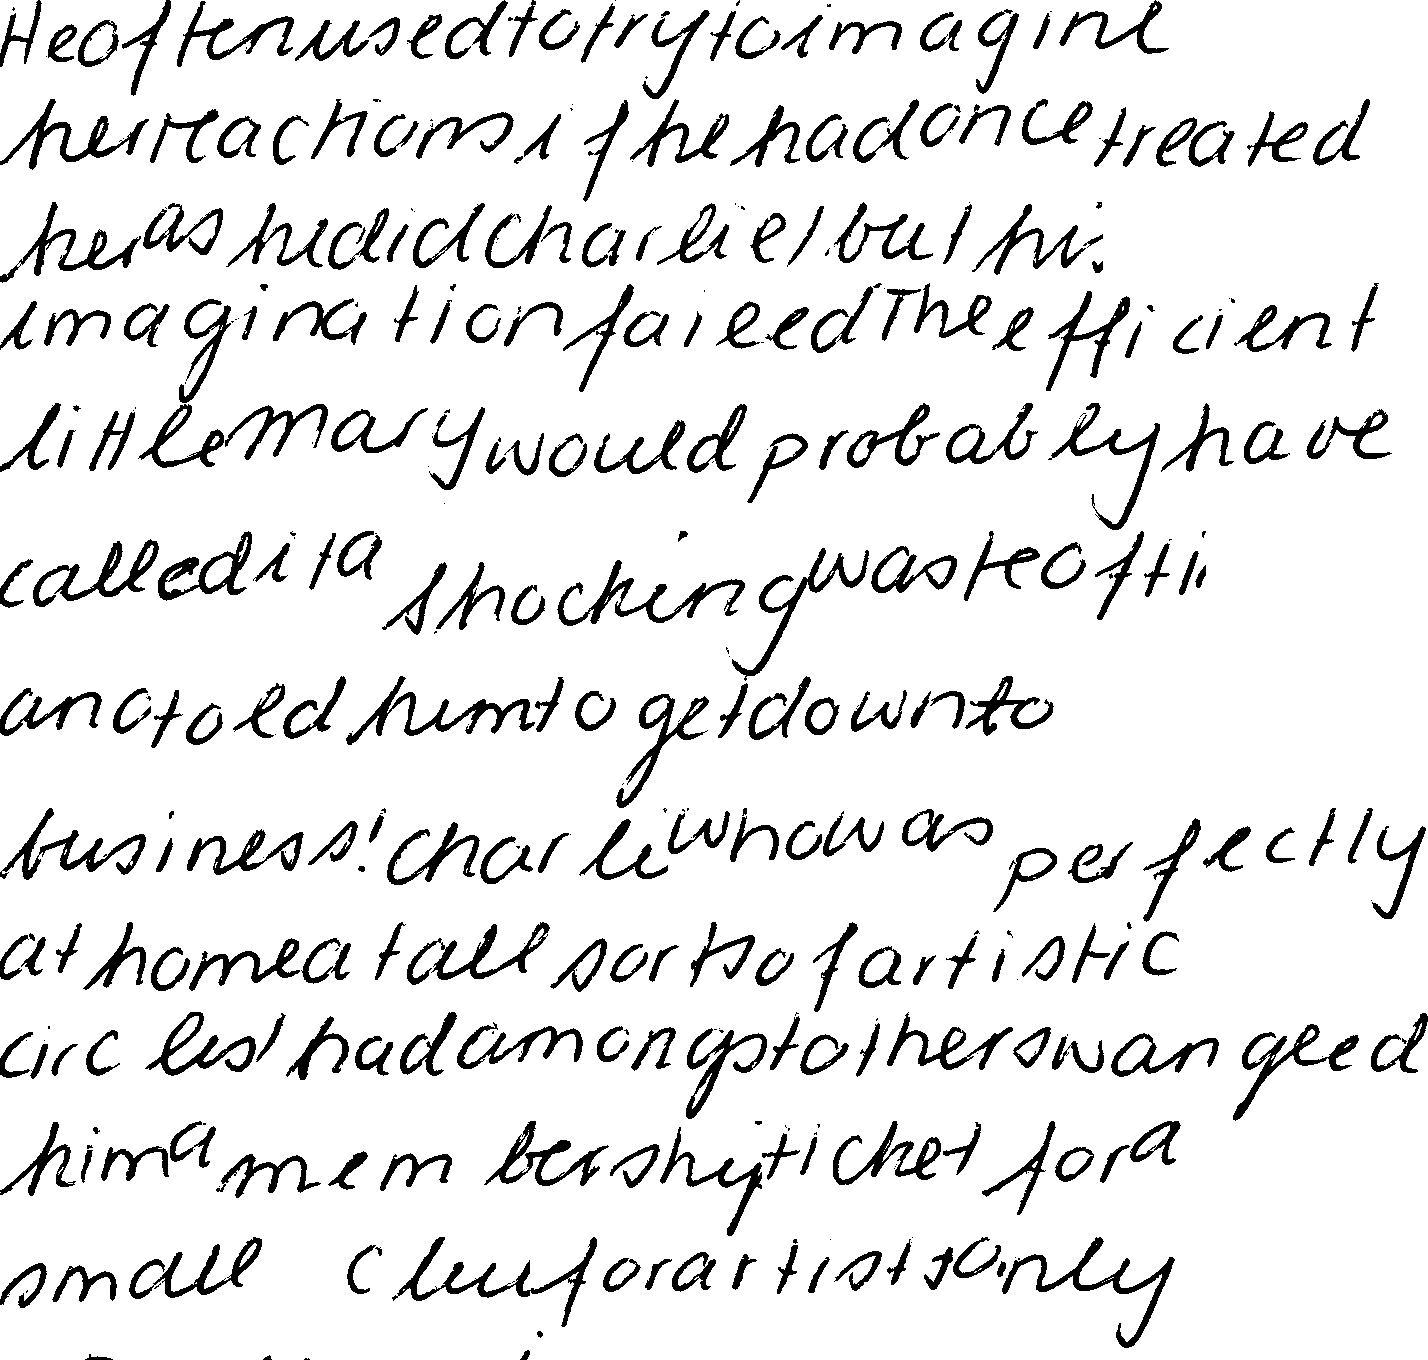 He often used to try to imagine
her reactions if he had once treated
her as he did Charlie, but his
imagination failed. The efficient
little Mary would probably have
called it a shocking waste of
and told him to get down to
business! Charlie who was perfectly
at home at all sorts of artistic
circles, had amongst others wangled
him a membership ticket for a
small club for artists only